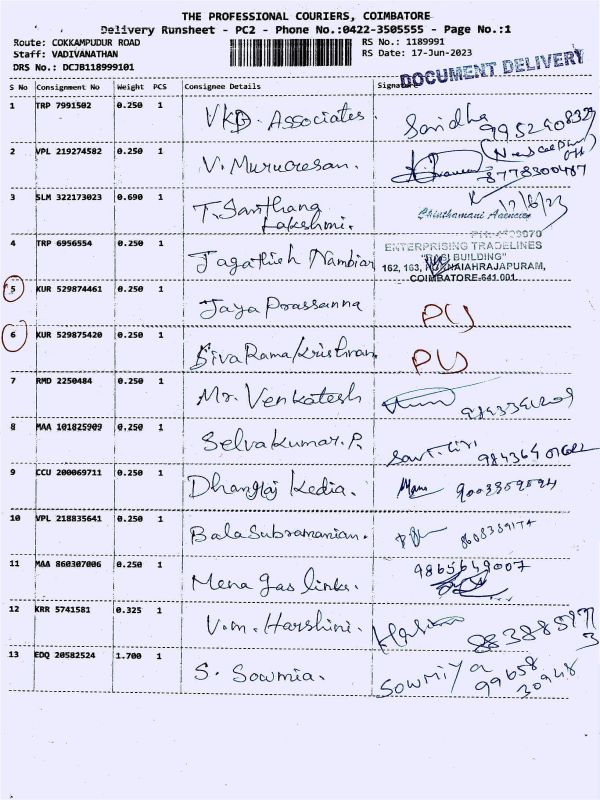 THE PROFESSIONAL COURIERS, COIMBATORE
Delivery Runsheet - PC2 - Phone No.:0422-3505555 - Page No.:1
Route: COKKAMPUDUR ROAD
RS No.: 1189991
Staff: VADIVANATHAN
RS Date: 17-Jun-2023
DRS No.: DCJB118999101
DOCUMENT DELIVERY
S No Consignment No Weight PCS Consignee Details Signature
1 TRP 7991502 0.250 1 VKD. Associates.
2 VPL 219274582 0.250 1 V. Murugesan. 8778300487
3 SLM 322173023 0.690 1 T. Santhana Lakshmi. 17/6/23
Chinthamani Agencies
4 TRP 6956554 0.250 1 Jagathish Nambiar
ENTERPRISING TRADELINES
BUILDING"
162, 163,
COIMBATORE-641 001.
5 KUR 529874461 0.250 1 Jaya Prassanna PU
6 KUR 529875420 0.250 1 Siva Rama Krishnan PU
7 RMD 2250484 0.250 1 Mr. Venkatesh
8 MAA 101825909 0.250 1 Selvakumar. P.
9 CCU 200069711 0.250 1 Dhanraj Kedia.
10 VPL 218835641 0.250 1 Bala Subramanian.
11 MAA 860307006 0.250 1 Mena gas links. 9865649007
12 KRR 5741581 0.325 1 V.m. Harshini.
13 EDQ 20582524 1.700 1 S. Sowmia. Sowmiya
99658
30948